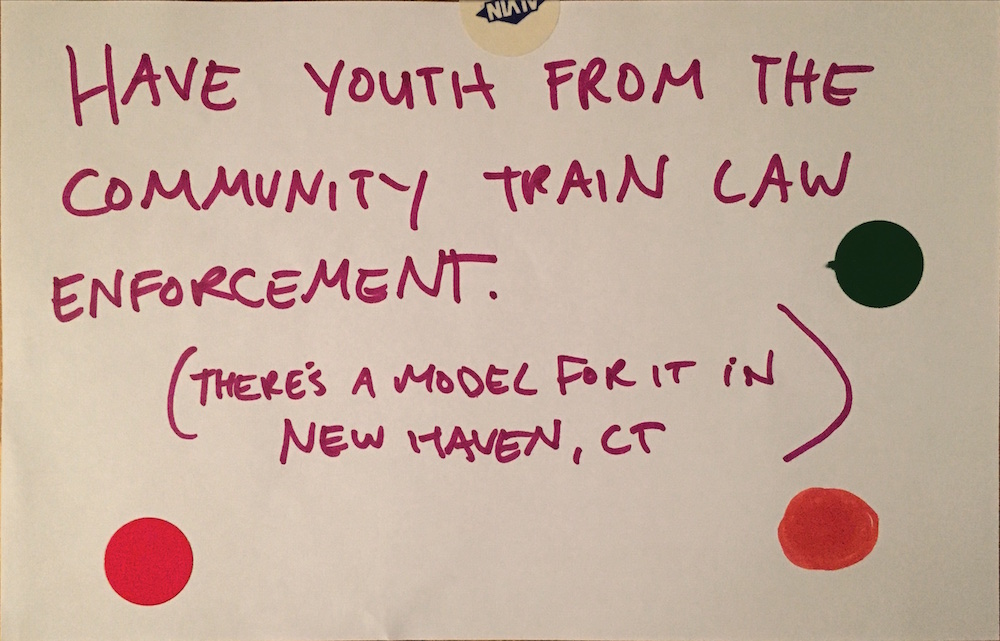 ALVIN
HAVE YOUTH FROM THE
COMMUNITY TRAIN LAW
ENFORCEMENT.
(THERE'S A MODEL FOR IT IN
NEW HAVEN, CT)